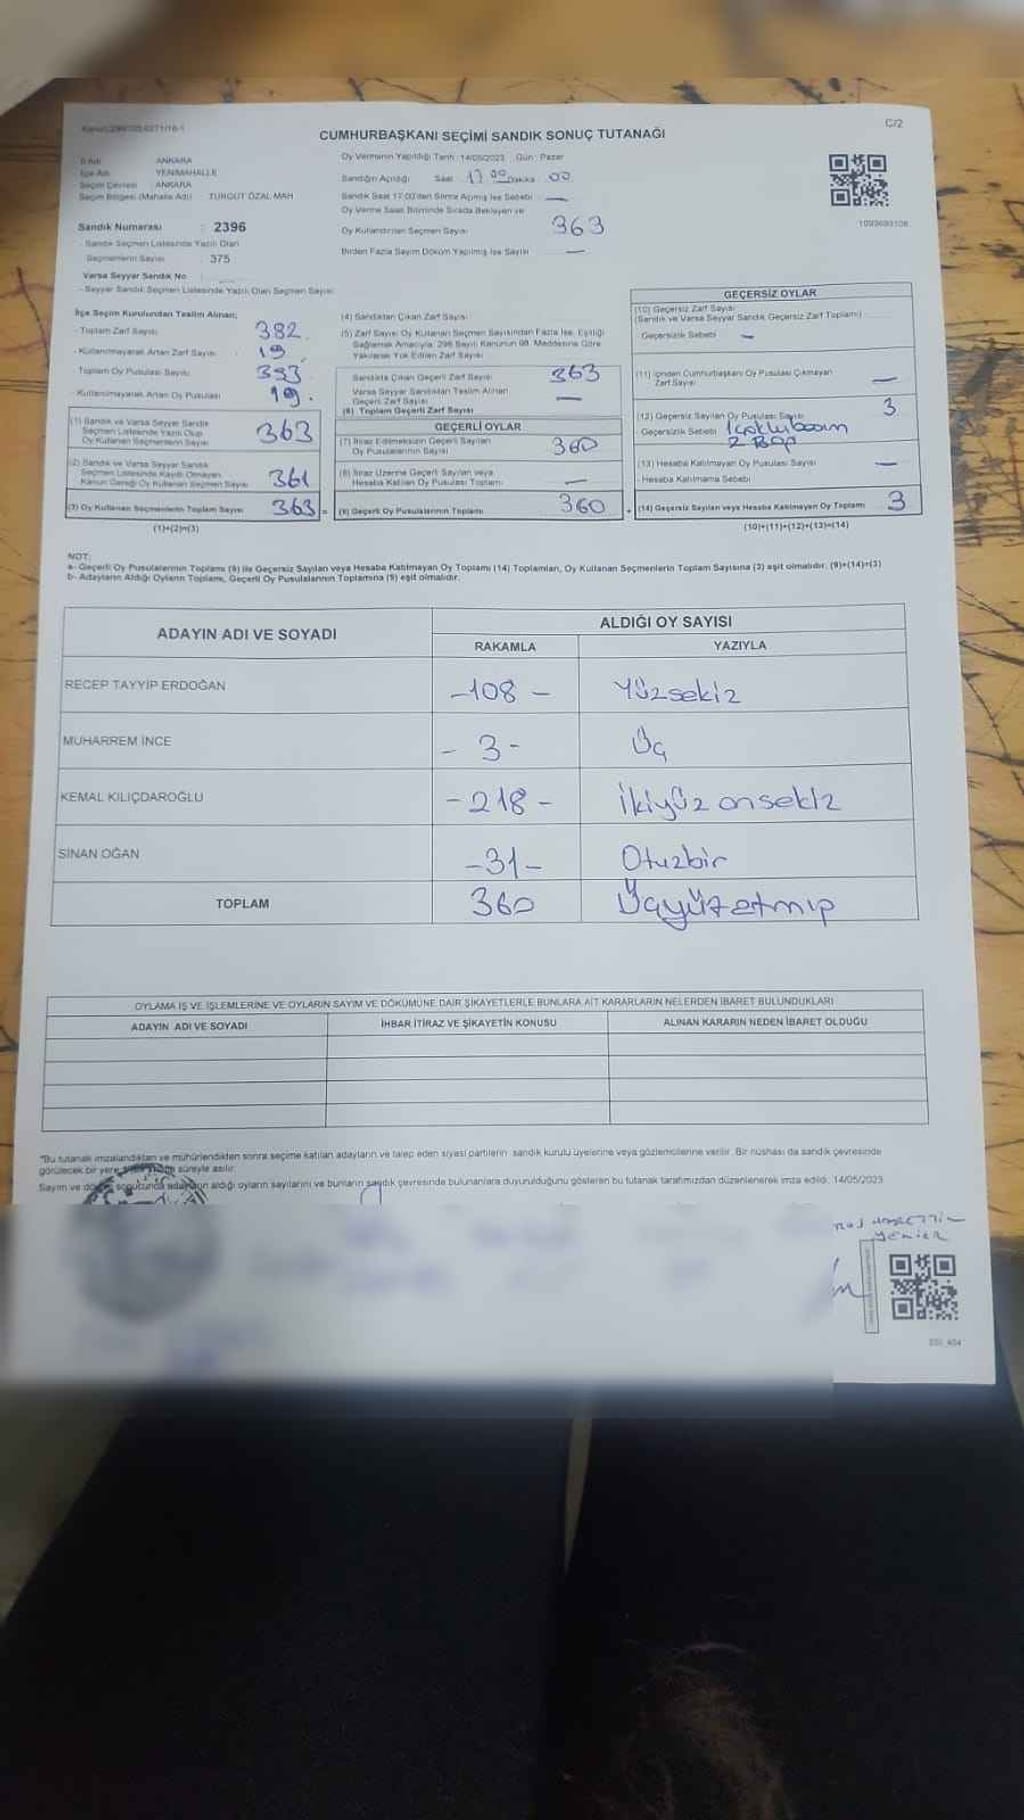 C/2
CUMHURBAŞKANI SEÇİMİ SANDIK SONUÇ TUTANAĞI
İl Adı ANKARA
İlçe Adı YENİMAHALLE
Seçim Çevresi ANKARA
Seçim Bölgesi (Mahalle Adı) TURGUT ÖZAL MAH
Sandık Numarası : 2396
- Sandık Seçmen Listesinde Yazılı Olan
Seçmenlerin Sayısı : 375
Varsa Seyyar Sandık No
- Seyyar Sandık Seçmen Listesinde Yazılı Olan Seçmen Sayısı
Oy Vermenin Yapıldığı Tarih : 14/05/2023 Gün : Pazar
Sandığın Açıldığı Saat 17 00 Dakika 00
Sandık Saat 17:00'den Sonra Açılmış İse Sebebi : —
Oy Verme Saati Bitiminde Sırada Bekleyen ve
Oy Kullandırılan Seçmen Sayısı 363
Birden Fazla Sayım Döküm Yapılmış İse Sayısı —
1099693106
İlçe Seçim Kurulundan Teslim Alınan;
- Toplam Zarf Sayısı 382
- Kullanılmayarak Artan Zarf Sayısı 19
- Toplam Oy Pusulası Sayısı
- Kullanılmayarak Artan Oy Pusulası 19.
(1) Sandık ve Varsa Seyyar Sandık
Seçmen Listesinde Yazılı Olup
Oy Kullanan Seçmenlerin Sayısı 363
(2) Sandık ve Varsa Seyyar Sandık
Seçmen Listesinde Kayıtlı Olmayan
Kanun Gereği Oy Kullanan Seçmen Sayısı 361
(3) Oy Kullanan Seçmenlerin Toplam Sayısı 363 =
(1)+(2)=(3)
(4) Sandıktan Çıkan Zarf Sayısı
(5) Zarf Sayısı Oy Kullanan Seçmen Sayısından Fazla İse, Eşitliği
Sağlamak Amacıyla, 298 Sayılı Kanunun 98. Maddesine Göre
Yakılarak Yok Edilen Zarf Sayısı
Sandıkta Çıkan Geçerli Zarf Sayısı 363
Varsa Seyyar Sandıktan Teslim Alınan
Geçerli Zarf Sayısı —
(6) Toplam Geçerli Zarf Sayısı
GEÇERLİ OYLAR
(7) İtiraz Edilmeksizin Geçerli Sayılan
Oy Pusulalarının Sayısı 360
(8) İtiraz Üzerine Geçerli Sayılan veya
Hesaba Katılan Oy Pusulası Toplamı —
(9) Geçerli Oy Pusulalarının Toplamı 360 +
GEÇERSİZ OYLAR
(10) Geçersiz Zarf Sayısı
(Sandık ve Varsa Seyyar Sandık Geçersiz Zarf Toplamı)
- Geçersizlik Sebebi —
(11) İçinden Cumhurbaşkanı Oy Pusulası Çıkmayan
Zarf Sayısı —
(12) Geçersiz Sayılan Oy Pusulası Sayısı 3
- Geçersizlik Sebebi 1
2
(13) Hesaba Katılmayan Oy Pusulası Sayısı —
- Hesaba Katılmama Sebebi
(14) Geçersiz Sayılan veya Hesaba Katılmayan Oy Toplamı 3
(10)+(11)+(12)+(13)=(14)
NOT:
a- Geçerli Oy Pusulalarının Toplamı (9) ile Geçersiz Sayılan veya Hesaba Katılmayan Oy Toplamı (14) Toplamları, Oy Kullanan Seçmenlerin Toplam Sayısına (3) eşit olmalıdır. (9)+(14)=(3)
b- Adayların Aldığı Oyların Toplamı, Geçerli Oy Pusulalarının Toplamına (9) eşit olmalıdır.
ADAYIN ADI VE SOYADI ALDIĞI OY SAYISI
RAKAMLA YAZIYLA
RECEP TAYYİP ERDOĞAN -108- Yüzsekiz
MUHARREM İNCE -3- Üç
KEMAL KILIÇDAROĞLU -218- İkiyüz onsekiz
SİNAN OĞAN -31- Otuzbir
TOPLAM 360 Üçyüzatmış
OYLAMA İŞ VE İŞLEMLERİNE VE OYLARIN SAYIM VE DÖKÜMÜNE DAİR ŞİKAYETLERLE BUNLARA AİT KARARLARIN NELERDEN İBARET BULUNDUKLARI
ADAYIN ADI VE SOYADI İHBAR İTİRAZ VE ŞİKAYETİN KONUSU ALINAN KARARIN NEDEN İBARET OLDUĞU
*Bu tutanak imzalandıktan ve mühürlendikten sonra seçime katılan adayların ve talep eden siyasi partilerin sandık kurulu üyelerine veya gözlemcilerine verilir. Bir nüshası da sandık çevresinde
görülecek bir yere süreyle asılır.
Sayım ve döküm sonucunda adayların aldığı oyların sayılarını ve bunların sandık çevresinde bulunanlara duyurulduğunu gösteren bu tutanak tarafımızdan düzenlenerek imza edildi. 14/05/2023